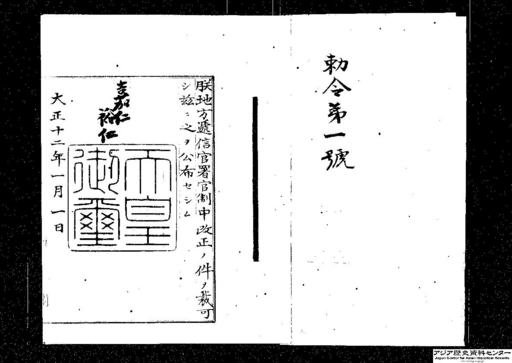 勅令第一號
朕地方遞信官署官制中改正ノ件ヲ裁可
シ茲ニ之ヲ公布セシム
嘉仁
裕仁
天皇
御璽
大正十二年一月一日
アジア歴史資料センター
Japan Center for Asian Historical Records